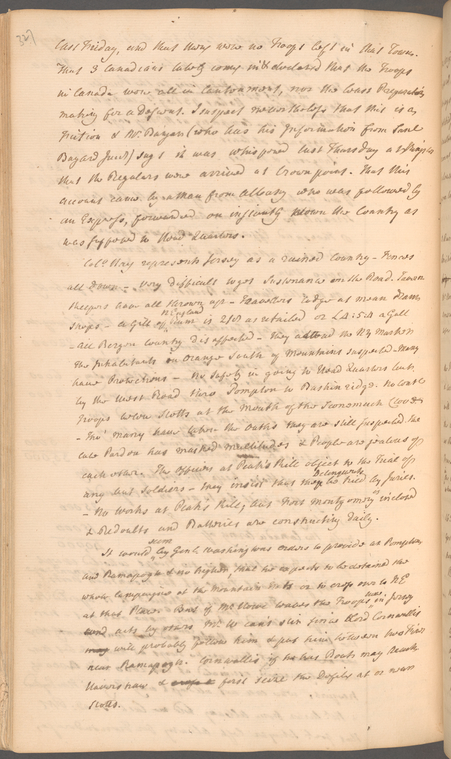 last Friday, and that there were no Troops left in that Town.
That 3 Canadians lately come in declared that the Troops
in Canada were all in Cantonment, nor the least Preparation
making for a descent. I suspect nevertheless that this is a
Fiction & Mr. Banyar (who has his Information from
Bayard) says it was whispered last Thursday at
that the Regulars were arrived at Crown point. That this
account came by a man from Albany who was followed by
an Express, forwarded on instantly down the Country as
was supposed to Head Quarters.
Colo. Hay represents Jersey as a ruined Country - Fences
all down - very difficult to get Sustenance on the Road. Tavern
keepers have all thrown up - Travellers lodge at mean
Shops. - a Gill of is 2/6 as retailed or £4.15.0 a Gall
- All Bergen County disaffected - they attend the N Y Market
the Inhabitants in Orange South of Mountains suspected. Many
have Protections - No safety in going to Head Quarters but
by the West Road thro Pompton to Baskin ridge. No
Troops below Slotts at the Mouth of the
- Tho' many have taken the Oaths they are still suspected the
late Pardon has masked multitudes & People are jealous of
each other. The Officers at Peaks Kill object to the Trial of
any but Soldiers - they insist that Delinquents may be tried by Juries.
- No works at Peaks Kill, but Fort Montgomery enclosed
& Redoubts and Batteries are constructing daily.
It would seem by Genl. Washingtons orders to provide at Pompton
and Ramapogh & no higher, that he expects to be detained the
whole Campaigne at the Mountain or to cross over to N E
at that Place. Some of Mr. Howe leaves the Troops now in Jersey
and acts by others Mr. W can't stir since Lord Cornwallis
will probably follow him & put him between two Fires
near Ramapogh. Cornwallis if he has Boats may reach
Haverstraw & first seize the Defiles at or near
Slotts.